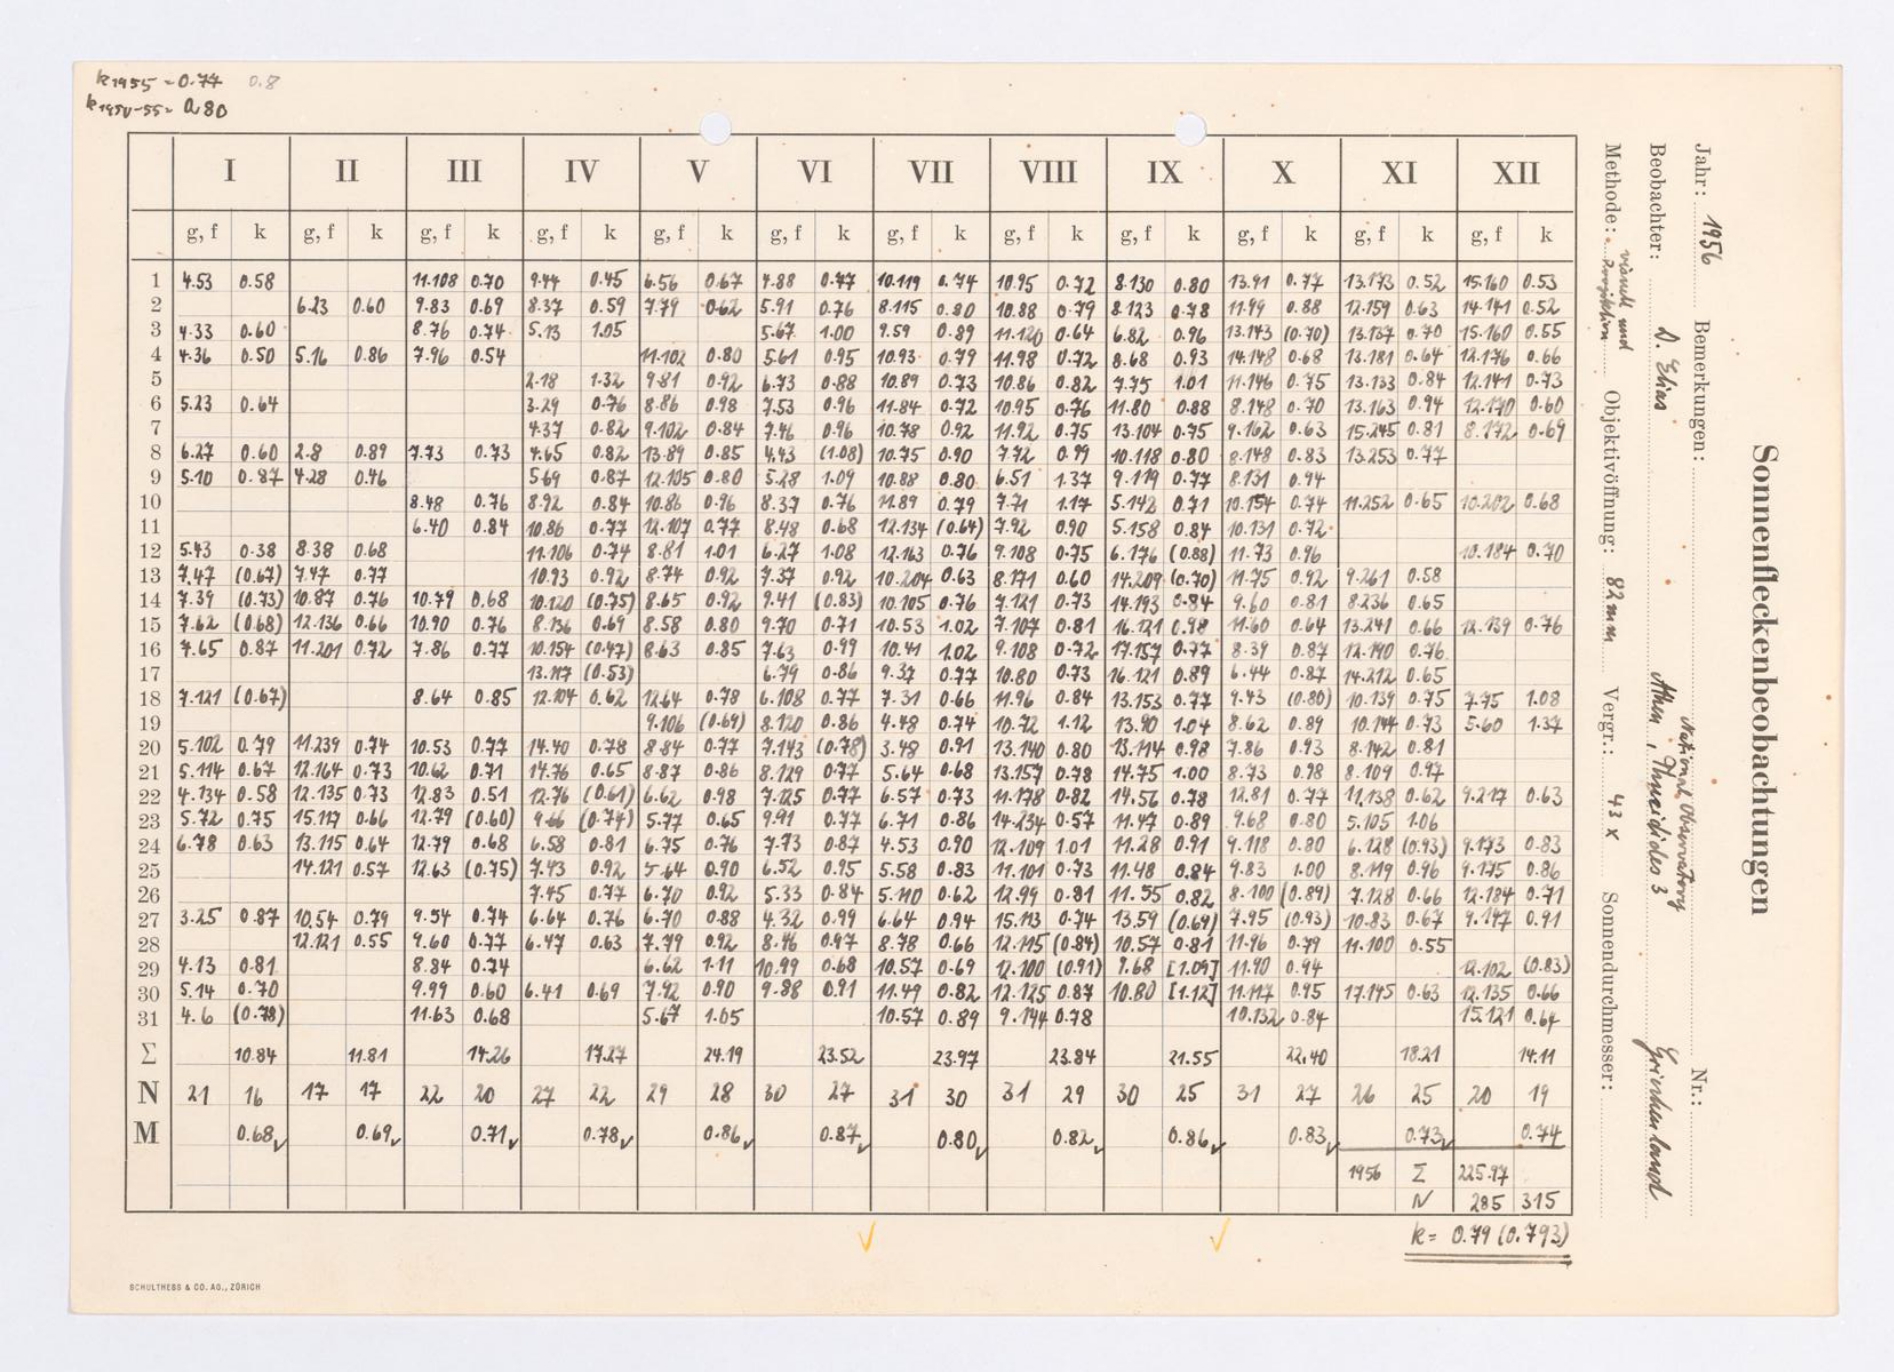 k1955 = 0.74 0.8
k1950-55 = 0.80
I II III IV V VI VII VIII IX X XI XII
g, f k g, f k g, f k g, f k g, f k g, f k g, f k g, f k g, f k g, f k g, f k g, f k
1 4.53 0.58 11.108 0.70 9.44 0.45 6.56 0.67 4.88 0.77 10.119 0.74 10.95 0.72 8.130 0.80 13.91 0.77 13.173 0.52 15.160 0.53
2 6.23 0.60 9.83 0.69 8.37 0.59 7.79 0.62 5.91 0.76 8.115 0.80 10.88 0.79 8.123 0.78 11.99 0.88 12.159 0.63 14.141 0.52
3 4.33 0.60 8.76 0.74 5.13 1.05 5.67 1.00 9.59 0.89 11.120 0.64 6.82 0.96 13.143 (0.70) 13.137 0.70 15.160 0.55
4 4.36 0.50 5.16 0.86 7.96 0.54 11.102 0.80 5.61 0.95 10.93 0.79 11.98 0.72 8.68 0.93 14.148 0.68 13.181 0.64 12.176 0.66
5 2.18 1.32 9.81 0.92 6.73 0.88 10.89 0.73 10.86 0.82 7.75 1.01 11.146 0.75 13.133 0.84 12.141 0.73
6 5.23 0.64 3.29 0.76 8.86 0.98 7.53 0.96 11.84 0.72 10.95 0.76 11.80 0.88 8.148 0.70 13.163 0.94 12.170 0.60
7 4.37 0.82 9.102 0.84 7.46 0.96 10.78 0.92 11.92 0.75 13.104 0.75 9.162 0.63 15.245 0.81 8.172 0.69
8 6.27 0.60 2.8 0.89 7.73 0.73 4.65 0.82 13.89 0.85 4.43 (1.08) 10.75 0.90 7.72 0.99 10.118 0.80 8.148 0.83 13.253 0.77
9 5.10 0.87 4.28 0.46 5.69 0.87 12.105 0.80 5.28 1.09 10.88 0.80 6.51 1.37 9.119 0.77 8.131 0.94
10 8.48 0.76 8.92 0.84 10.86 0.96 8.37 0.76 11.89 0.79 7.71 1.17 5.142 0.71 10.154 0.74 11.252 0.65 10.202 0.68
11 6.40 0.84 10.86 0.77 12.107 0.77 8.48 0.68 12.134 (0.64) 7.92 0.90 5.158 0.84 10.131 0.72
12 5.43 0.38 8.38 0.68 11.106 0.74 8.81 1.01 6.27 1.08 12.163 0.76 9.108 0.75 6.176 (0.88) 11.73 0.96 10.184 0.70
13 7.47 (0.67) 7.47 0.77 10.93 0.92 8.74 0.92 7.37 0.92 10.204 0.63 8.171 0.60 14.209 (0.70) 11.75 0.92 9.261 0.58
14 7.39 (0.73) 10.87 0.76 10.79 0.68 10.120 (0.75) 8.65 0.92 9.41 (0.83) 10.105 0.76 7.121 0.73 14.193 0.84 9.60 0.81 8.236 0.65
15 7.62 (0.68) 12.136 0.66 10.90 0.76 8.136 0.69 8.58 0.80 9.70 0.71 10.53 1.02 7.107 0.81 16.121 0.98 11.60 0.64 13.241 0.66 12.139 0.76
16 7.65 0.87 11.201 0.72 7.86 0.77 10.154 (0.47) 8.63 0.85 7.63 0.99 10.41 1.02 9.108 0.72 17.157 0.77 8.39 0.87 12.190 0.76
17 13.117 (0.53) 6.79 0.86 9.37 0.77 10.80 0.73 16.121 0.89 6.44 0.87 14.212 0.65
18 7.121 (0.67) 8.64 0.85 12.104 0.62 12.64 0.78 6.108 0.77 7.31 0.66 11.96 0.84 13.153 0.77 9.43 (0.80) 10.139 0.75 7.75 1.08
19 9.106 (0.69) 8.120 0.86 4.48 0.74 10.72 1.12 13.90 1.04 8.62 0.89 10.144 0.73 5.60 1.37
20 5.102 0.79 11.239 0.74 10.53 0.77 14.40 0.78 8.84 0.77 7.143 (0.78) 3.48 0.91 13.140 0.80 13.114 0.98 7.86 0.93 8.142 0.81
21 5.114 0.67 12.164 0.73 10.62 0.71 14.76 0.65 8.87 0.86 8.129 0.77 5.64 0.68 13.157 0.78 14.75 1.00 8.73 0.98 8.109 0.97
22 4.134 0.58 12.135 0.73 12.83 0.51 12.76 (0.61) 6.62 0.98 7.125 0.77 6.57 0.73 11.178 0.82 14.56 0.78 12.81 0.77 11.138 0.62 9.217 0.63
23 5.72 0.75 15.117 0.66 12.79 (0.60) 9.66 (0.74) 5.77 0.65 9.91 0.77 6.71 0.86 14.234 0.57 11.47 0.89 9.68 0.80 5.105 1.06
24 6.78 0.63 13.115 0.64 12.79 0.68 6.58 0.81 6.75 0.76 7.73 0.87 4.53 0.90 12.109 1.01 11.28 0.91 9.118 0.80 6.128 (0.93) 9.173 0.83
25 14.121 0.57 12.63 (0.75) 7.43 0.92 5.64 0.90 6.52 0.95 5.58 0.83 11.101 0.73 11.48 0.84 9.83 1.00 8.119 0.96 9.175 0.86
26 7.45 0.77 6.70 0.92 5.33 0.84 5.110 0.62 12.99 0.81 11.55 0.82 8.100 (0.89) 7.128 0.66 12.184 0.71
27 3.25 0.87 10.54 0.79 9.54 0.74 6.64 0.76 6.70 0.88 4.32 0.99 6.64 0.94 15.113 0.74 13.59 (0.69) 7.95 (0.93) 10.83 0.67 9.147 0.91
28 12.121 0.55 9.60 0.77 6.47 0.63 7.79 0.92 8.76 0.97 8.78 0.66 12.115 (0.84) 10.57 0.81 11.96 0.79 11.100 0.55
29 4.13 0.81 8.84 0.74 6.62 1.11 10.99 0.68 10.57 0.69 12.100 (0.91) 9.68 [1.09] 11.90 0.94 12.102 (0.83)
30 5.14 0.70 9.99 0.60 6.41 0.69 7.92 0.90 9.88 0.91 11.49 0.82 12.125 0.87 10.80 [1.12] 11.117 0.95 17.145 0.63 12.135 0.66
31 4.6 (0.78) 11.63 0.68 5.67 1.05 10.57 0.89 9.144 0.78 10.132 0.84 15.121 0.64
Σ 10.84 11.81 14.26 17.27 24.19 23.52 23.97 23.84 21.55 22.40 18.21 14.11
N 21 16 17 17 22 20 27 22 29 28 30 27 31 30 31 29 30 25 31 27 26 25 20 19
M 0.68 0.69 0.71 0.78 0.86 0.87 0.80 0.82 0.86 0.83 0.73 0.74
1956 Σ 225.97
N 285 315
k = 0.79 (0.793)
SCHULTHESS & CO. AG., ZÜRICH
Sonnenfleckenbeobachtungen
Jahr: 1956 Bemerkungen: Nr.:
National Observatory
Beobachter: D. Elias Athen, Thucidides 3 Griechenland
visuell und
Methode: Projektion Objektivöffnung: 82mm Vergr.: 43 x Sonnendurchmesser: